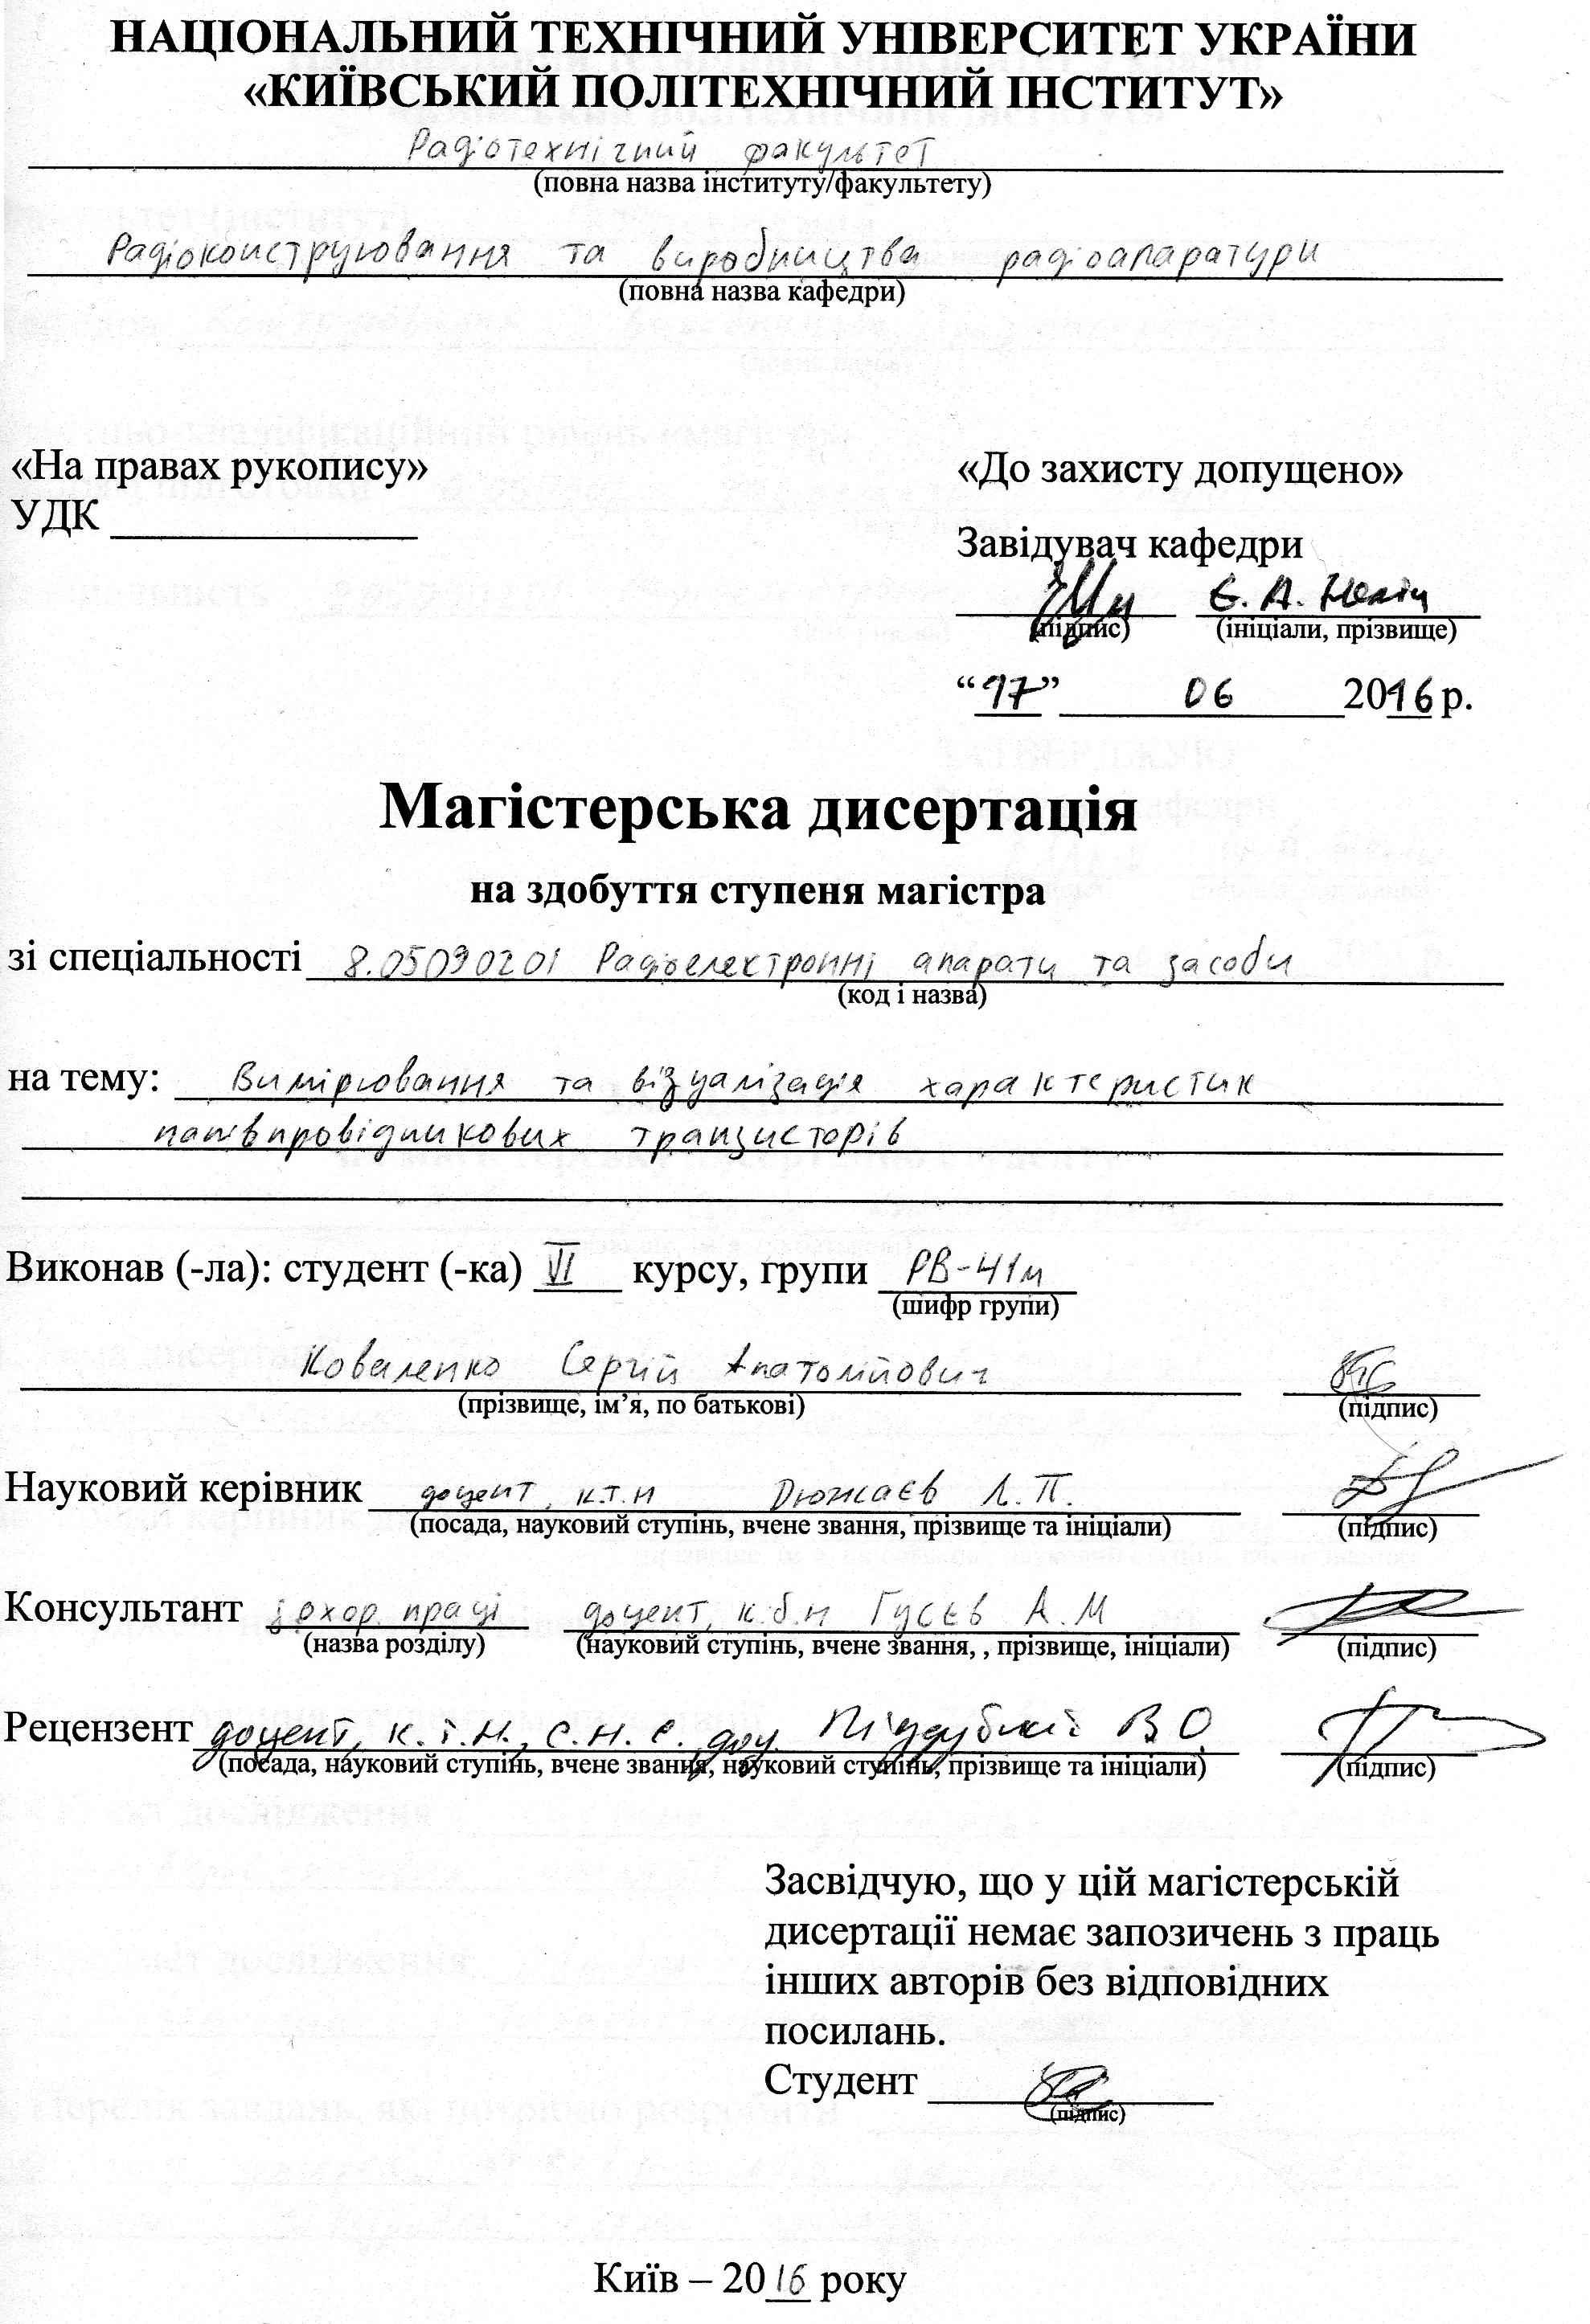 НАЦІОНАЛЬНИЙ ТЕХНІЧНИЙ УНІВЕРСИТЕТ УКРАЇНИ
«КИЇВСЬКИЙ ПОЛІТЕХНІЧНИЙ ІНСТИТУТ»
Радіотехнічний факультет
(повна назва інституту/факультету)
Радіоконструювання та виробництва радіоапаратури
(повна назва кафедри)
«На правах рукопису»
УДК
«До захисту допущено»
Завідувач кафедри
Є. А. Нелін
(підпис) (ініціали, прізвище)
“17” 06 2016 р.
Магістерська дисертація
на здобуття ступеня магістра
зі спеціальності 8.05090201 Радіоелектронні апарати та засоби
(код і назва)
на тему: Вимірювання та візуалізація характеристик
напівпровідникових транзисторів
Виконав (-ла): студент (-ка) VI курсу, групи РВ-41м
(шифр групи)
Коваленко Сергій Анатолійович
(прізвище, ім’я, по батькові) (підпис)
Науковий керівник доцент, к.т.н Дюжаєв Л. П.
(посада, науковий ступінь, вчене звання, прізвище та ініціали) (підпис)
Консультант з охор. праці доцент, к.б.н Гусєв А. М
(назва розділу) (науковий ступінь, вчене звання, , прізвище, ініціали) (підпис)
Рецензент доцент, к.т.н., с.н.с. доц. Піддубний В О
(посада, науковий ступінь, вчене звання, науковий ступінь, прізвище та ініціали) (підпис)
Засвідчую, що у цій магістерській
дисертації немає запозичень з праць
інших авторів без відповідних
посилань.
Студент
(підпис)
Київ – 2016 року